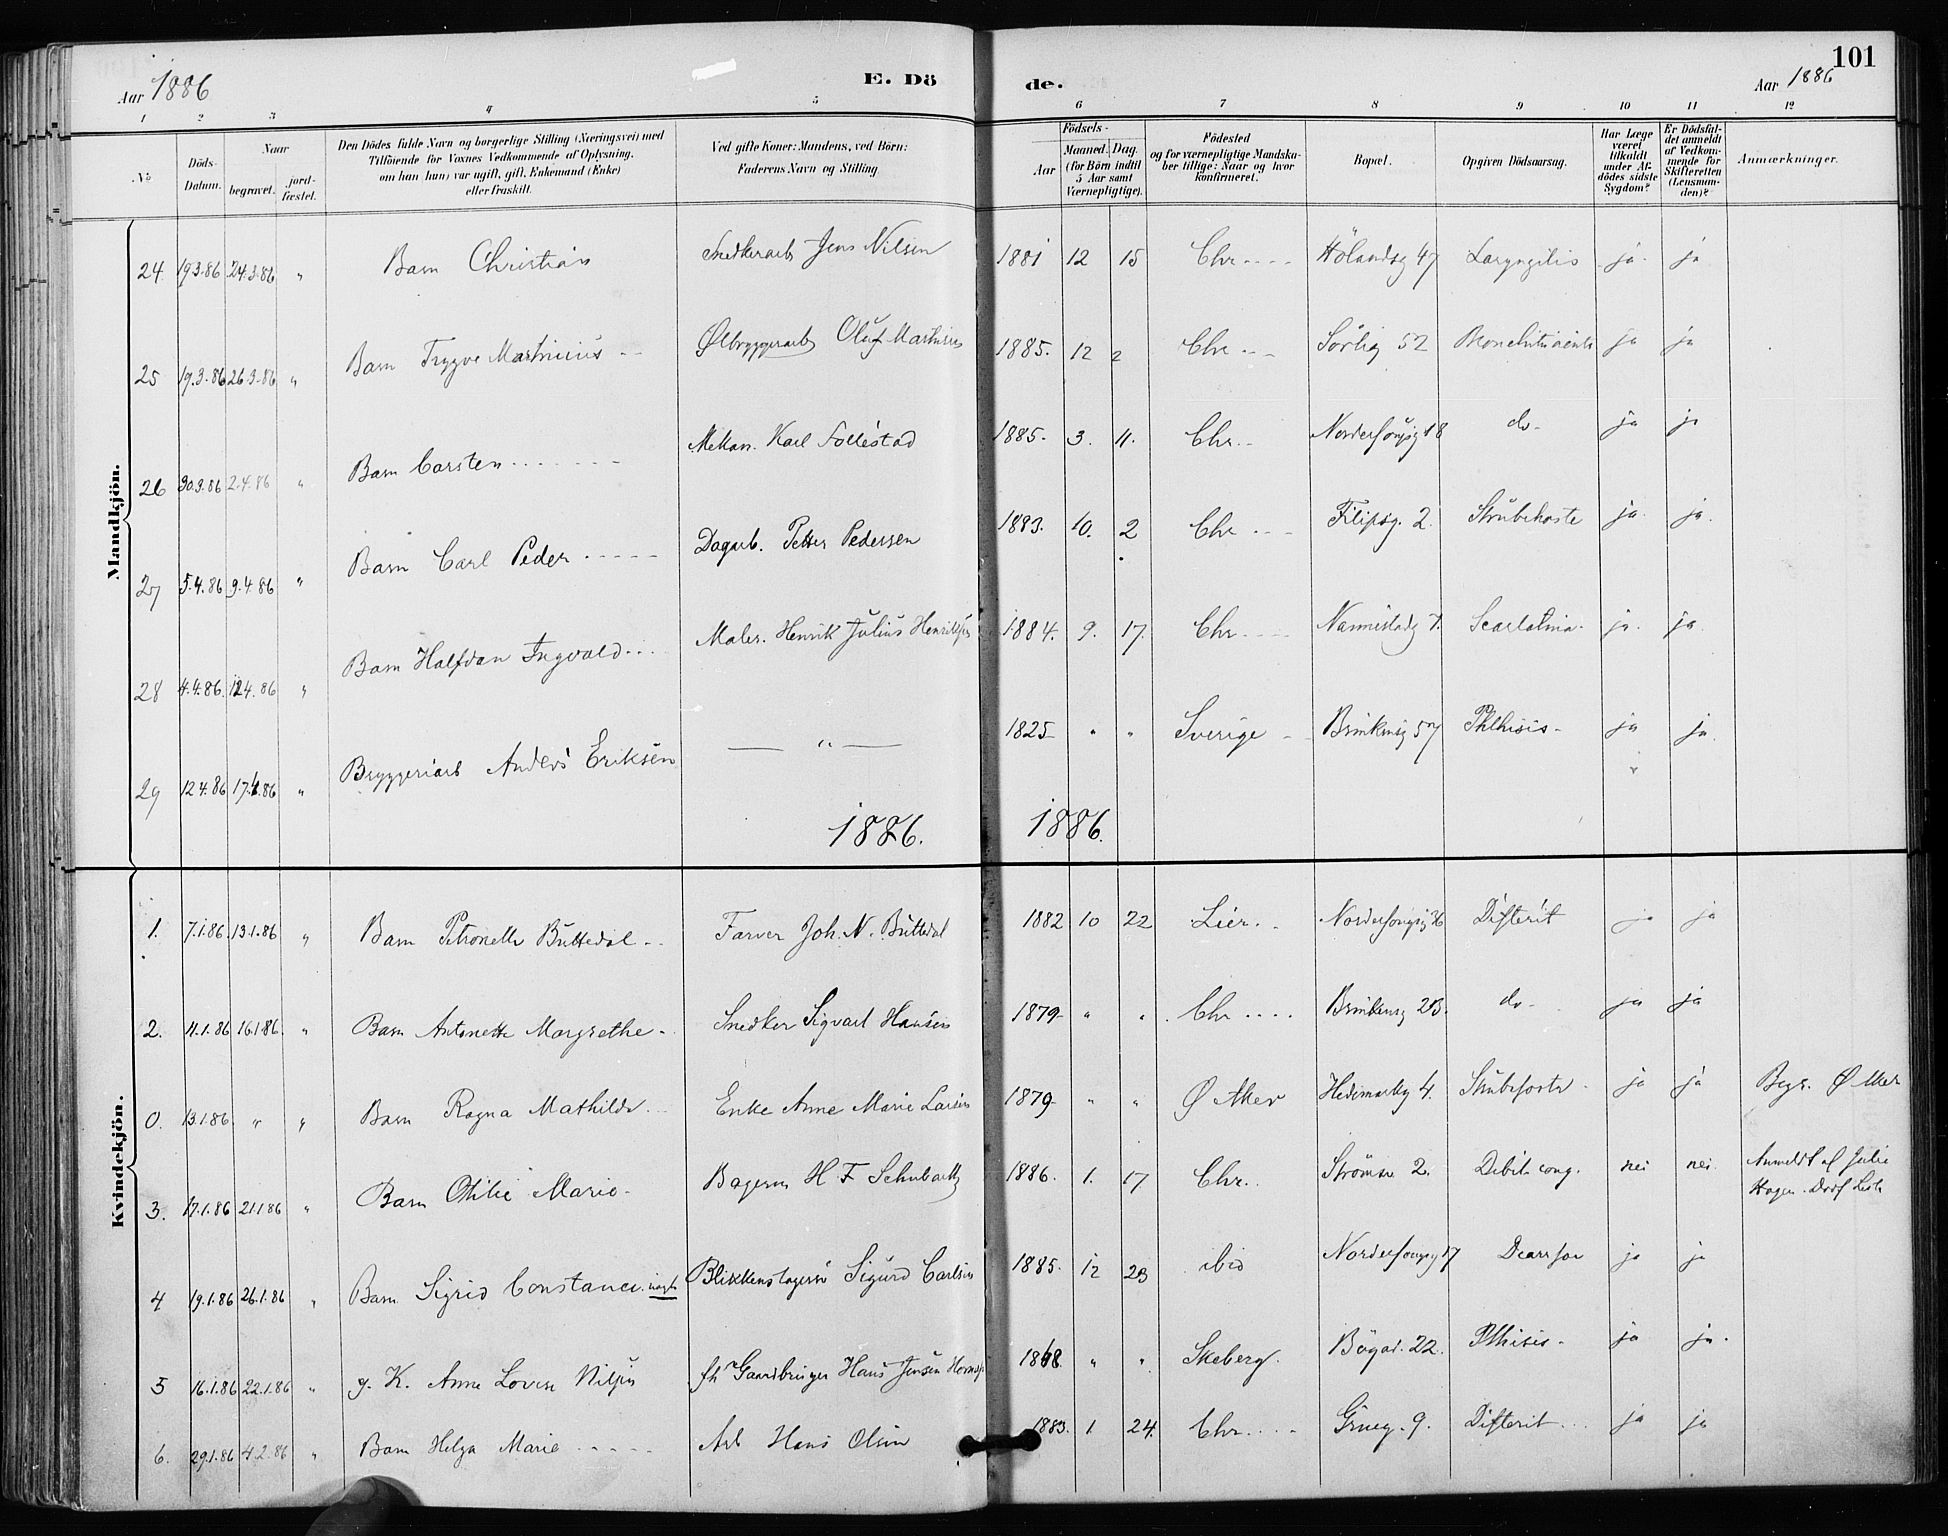 Aar 1886
E. Dö
de.
Aar 1886
101
1 2 3 4 5 6 7 8 9 10 11 12
No
Döds-Datum.
Naar
begravet.
jord-fæstet.
Den Dödes fulde Navn og borgerlige Stilling (Næringsvei) med
Tilföiende for Voxnes Vedkommende af Oplysning,
om han (hun) var ugift, gift, Enkemand (Enke)
eller fraskilt.
Ved gifte Koner: Mandens, ved Börn:
Faderens Navn og Stilling.
Födsels-
Aar
Maaned. Dag.
(for Börn indtil
5 Aar samt
Værnepligtige).
Födested
og for værnepligtige Mandska-
ber tillige: Naar og hvor
konfirmeret.
Bopæl.
Opgiven Dödsaarsag.
Har Læge
været
tilkaldt
under Af-
dödes sidste
Sygdom?
Er Dödsfal-
det anmeldt
af Vedkom-
mende for
Skifteretten
(Lensman-
den)?
Anmærkninger.
Mandkjön.
24. 19.3.86 24.3.86 " Barn Christian Snedkerarb Jens Nilsen 1881 12 15 Chr.... Hölandsg 47 Laryngitis ja. ja
25 19.3.86 26.3.86 " Barn Trygve Martinius -- Ølbryggerarb Oluf Martinsen 1885. 12 2 Chr... Sörlig 52 ja ja
26 30.3.86 2.4.86 " Barn Carsten....... Mekan. Karl Follestad 1885. 3. 11. Chr.. 18 do- ja ja
27 5.4.86 9.4.86 " Barn Carl Peder ----- Dagarb. Petter Pedersen 1883. 10. 2 Chr... Filipsg. 2. Strubehoste ja. ja.
28 4.4.86. 12.4.86 " Barn Halfdan Ingvald... Maler. Henrik Julius Henriksen 1884. 9. 17. Chr.... 7. Scarlatina. ja. ja.
29 12.4.86 17.4.86 " Bryggeriarb Anders Eriksen — " — 1825 " " Sverige - Brinkensg 57 Phthisis- ja ja.
1886.
1886.
Kvindekjön.
1. 7.1.86. 13.1.86 " Barn Petronelle Buttedal.. Farver Joh. N. Buttedal 1882 10 22 Lier.. Difterit ja ja
2. 11.1.86 16.1.86. " Barn Antonette Margrethe-. Snedker Sigvart Hansen 1879- " " Chr.... Brinkensg 23. do- ja ja
0. 13.1.86 " " Barn Ragna Mathilde... Enke Anne Marie Larsen 1879- " " Ø Aker Hedemarksg 4. ja ja Begr. Ø Aker
3. 17.1.86 21.1.86 " Barn Otilie Marie- Bagersv H F Schubartz 1886. 1. 17 Chr.. 2. Debilit. cong. nei nei. Anmeldt af Julie
Hagen.
4 19.1.86 26.1.86 " Barn Sigrid Constance. Blikkenslagersv Sigurd Carlsen 1885. 12 23 ibid 17 ja ja
5 16.1.86 22.1.86 " g. K. Anne Lovise Nilsen fh Gaardbruger Hans Jensen 18 " " Skeberg. Bögad. 22. Phthisis- ja ja.
6. 29.1.86 4.2.86 " Barn Helga Marie ----- Arb Hans Olsen 1883. 1. 24. Chr.... 9. Difterit... ja ja